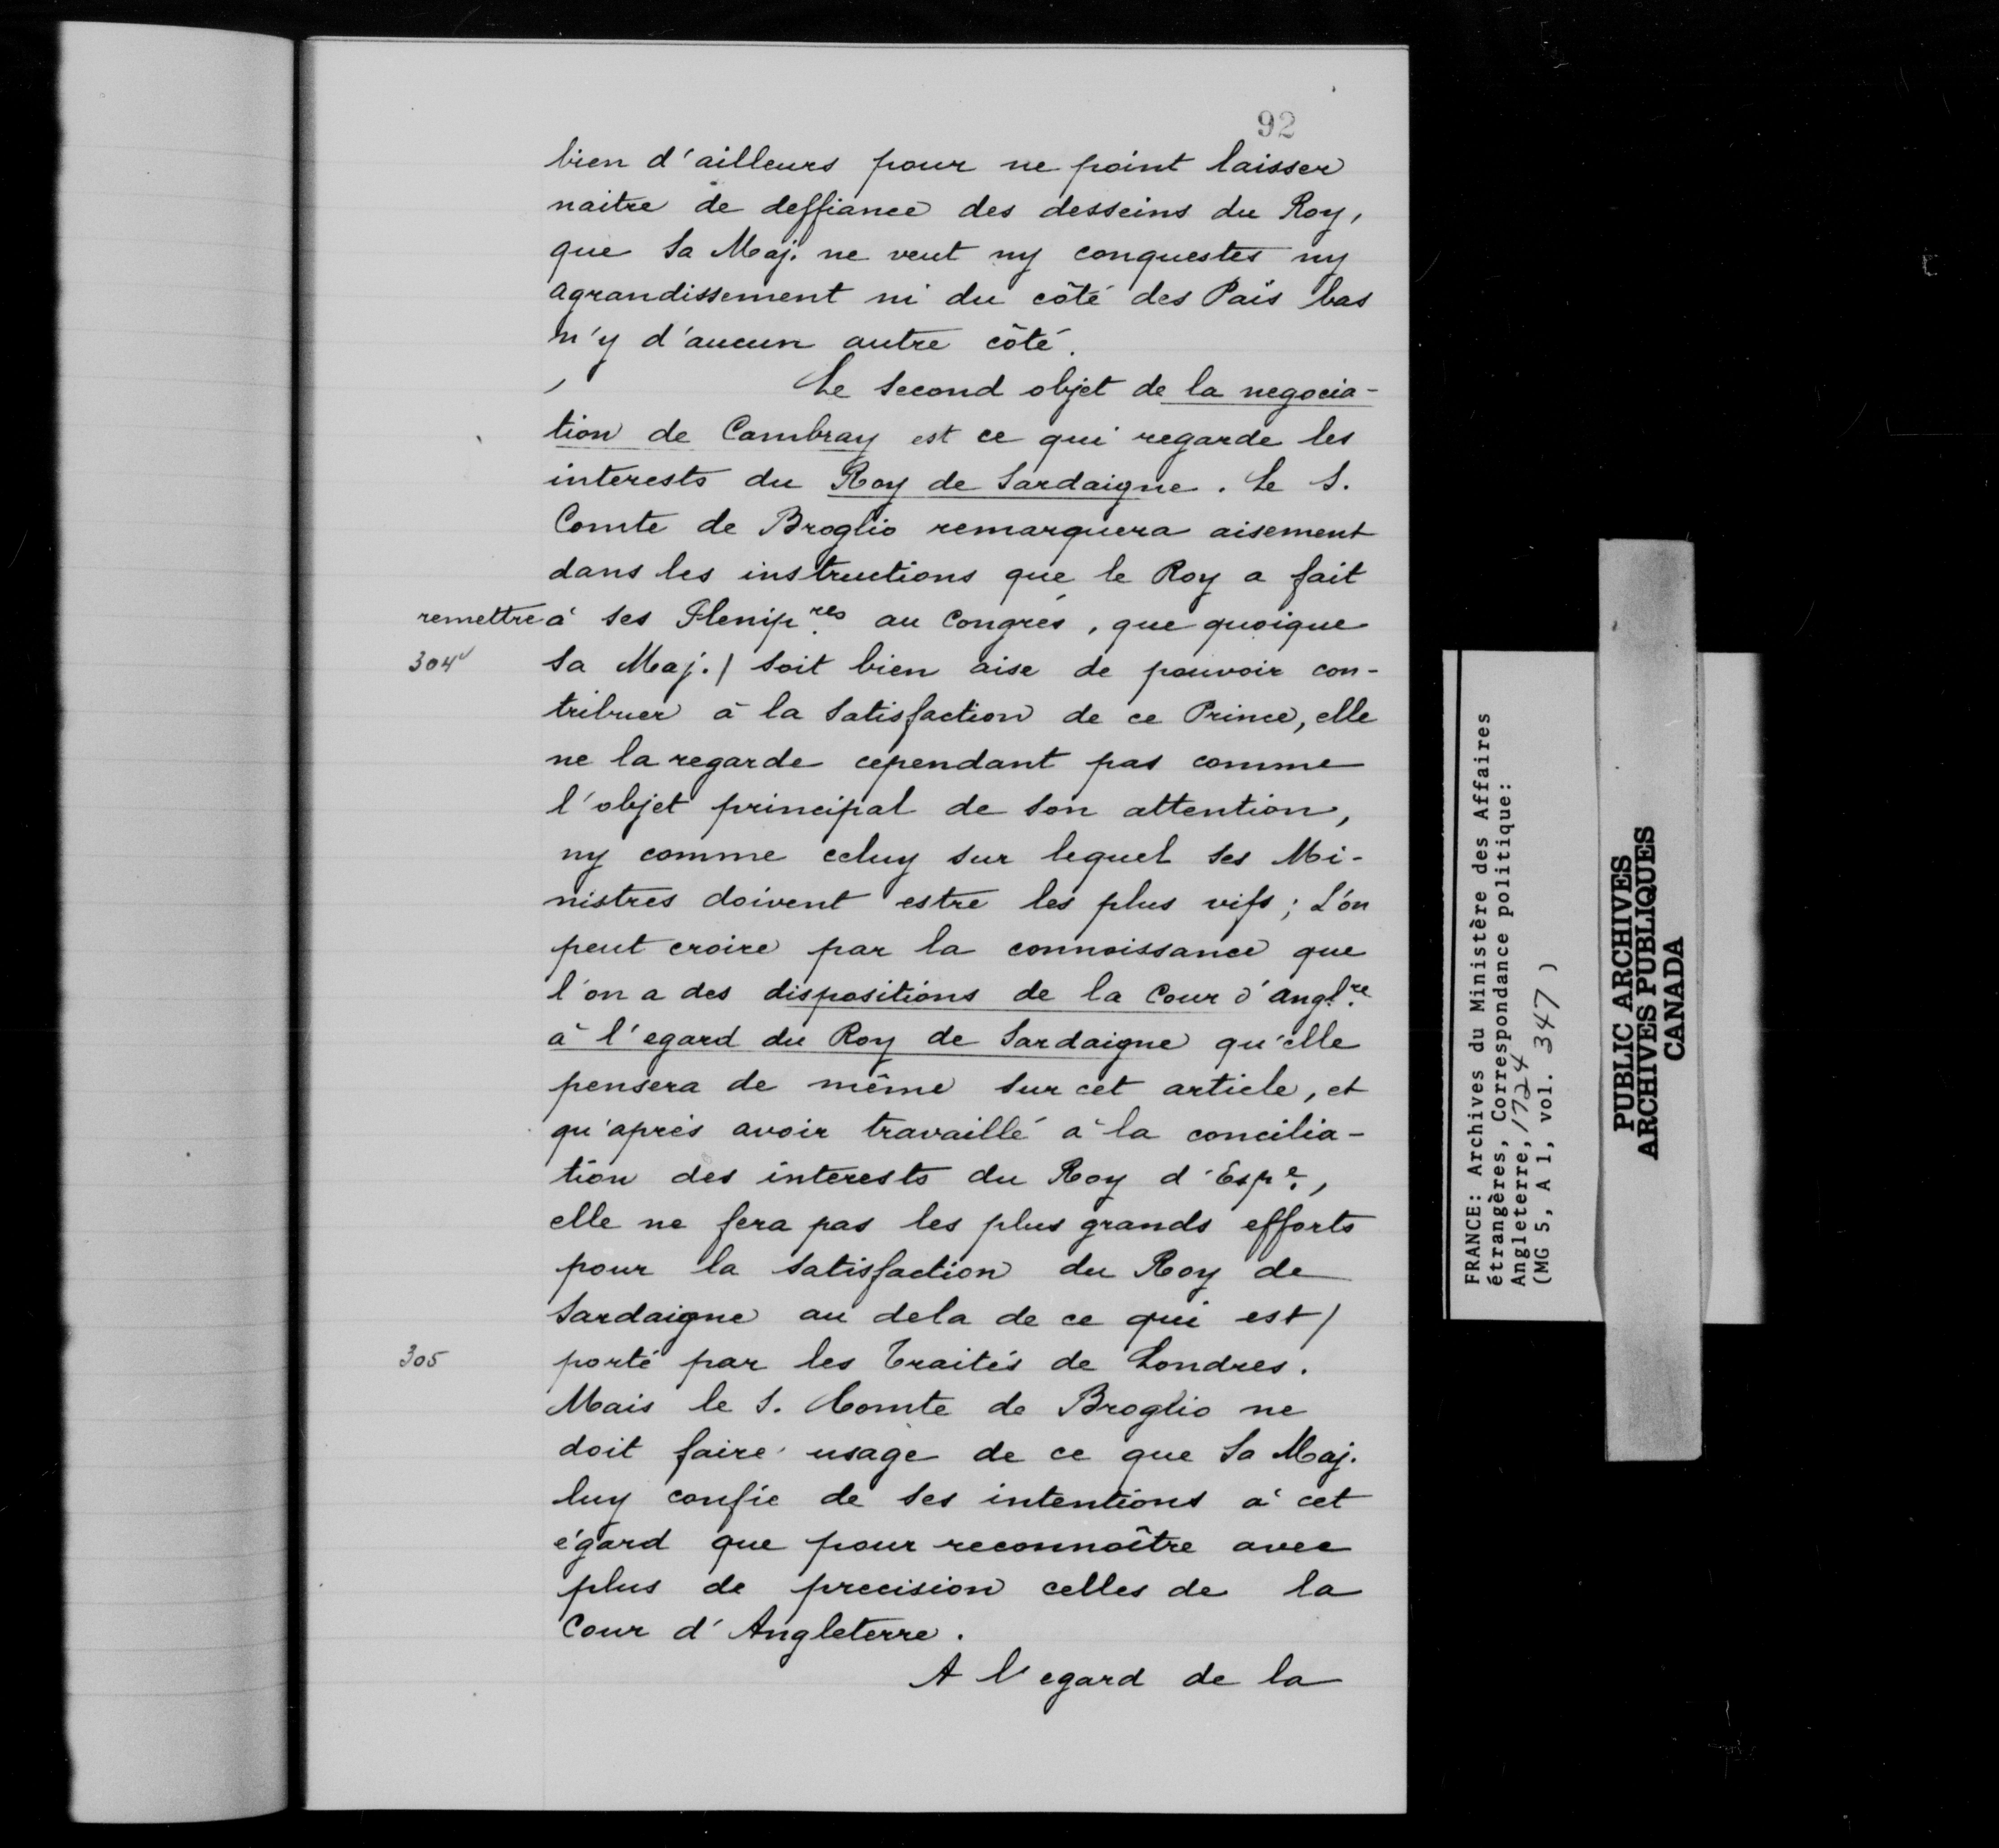 92
bien d'ailleurs pour ne point laisser
naitre de deffiance des desseins du Roy,
que Sa Maj. ne veut ny conquestes ny
agrandissement ni du côté des Païs bas
n'y d'aucun autre côté.
Le second objet de la negocia-
tion de Cambray est ce qui regarde les
interests du Roy de Sardaigne. Le S.
Comte de Broglio remarquera aisement
dans les instructions que le Roy a fait
remettre à ses Plenip.res au Congrés, que quoique
304v Sa Maj. / soit bien aise de pouvoir con-
tribuer à la satisfaction de ce Prince, elle
ne la regarde cependant pas comme
l'objet principal de son attention,
ny comme celuy sur lequel ses Mi-
nistres doivent estre les plus vifs; L'on
peut croire par la connoissance que
l'on a des dispositions de la Cour d'angl.re
à l'egard du Roy de Sardaigne qu'elle
pensera de même sur cet article, et
qu'aprés avoir travaillé à la concilia-
tion des interests du Roy d'Esp.e,
elle ne fera pas les plus grands efforts
pour la satisfaction du Roy de
Sardaigne au dela de ce qui est /
305 porté par les Traités de Londres.
Mais le S. Comte de Broglio ne
doit faire usage de ce que Sa Maj.
luy confie de ses intentions à cet
égard que pour reconnoître avec
plus de precision celles de la
Cour d'Angleterre.
A l'egard de la
FRANCE: Archives du Ministère des Affaires
étrangères, Correspondance politique:
Angleterre, 1724
(MG 5, A 1, vol. 347 )
PUBLIC ARCHIVES
ARCHIVES PUBLIQUES
CANADA